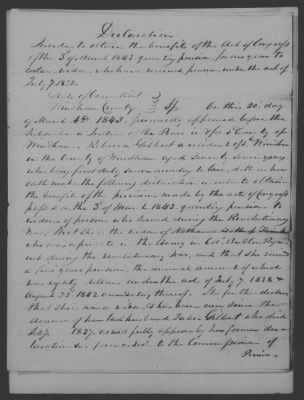 Declaration
In order to obtain the benefits of the Act of Congress
of the 3d of March 1843 granting pension for one year to
certain widows who have received pension under the act of
July 7 1838.
State of Connecticut
Windham County } Ss. On this 20th day
of March AD. 1843, personally appeared before the
Subscriber a Justice of the Peace in & for sd County of
Windham, Rebecca Gilbert a resident of Windham
in the County of Windham aged Seventy Seven years
who being first duly sworn according to law, doth on her
oath make the following declaration in order to obtain
the benefit of the provision made by the act of Congress
passed on the 3d of March 1843, granting pensions to
widows of persons who served during the Revolutionary
War, that she is the widow of Nathaniel
who was a private in the Army in Col.
during the revolutionary war, and that she received
a five years pension, the annual amount of which
was eighty dollars, under the act of July 7 1838 &
August 23d 1842 amendatory thereof. She further declares
that she was a widow & has been ever since the
decease of her last husband Gilbert who died
1827. as will fully appear by her former dec-
laration forwarded to the Commissioner of
Pensions.